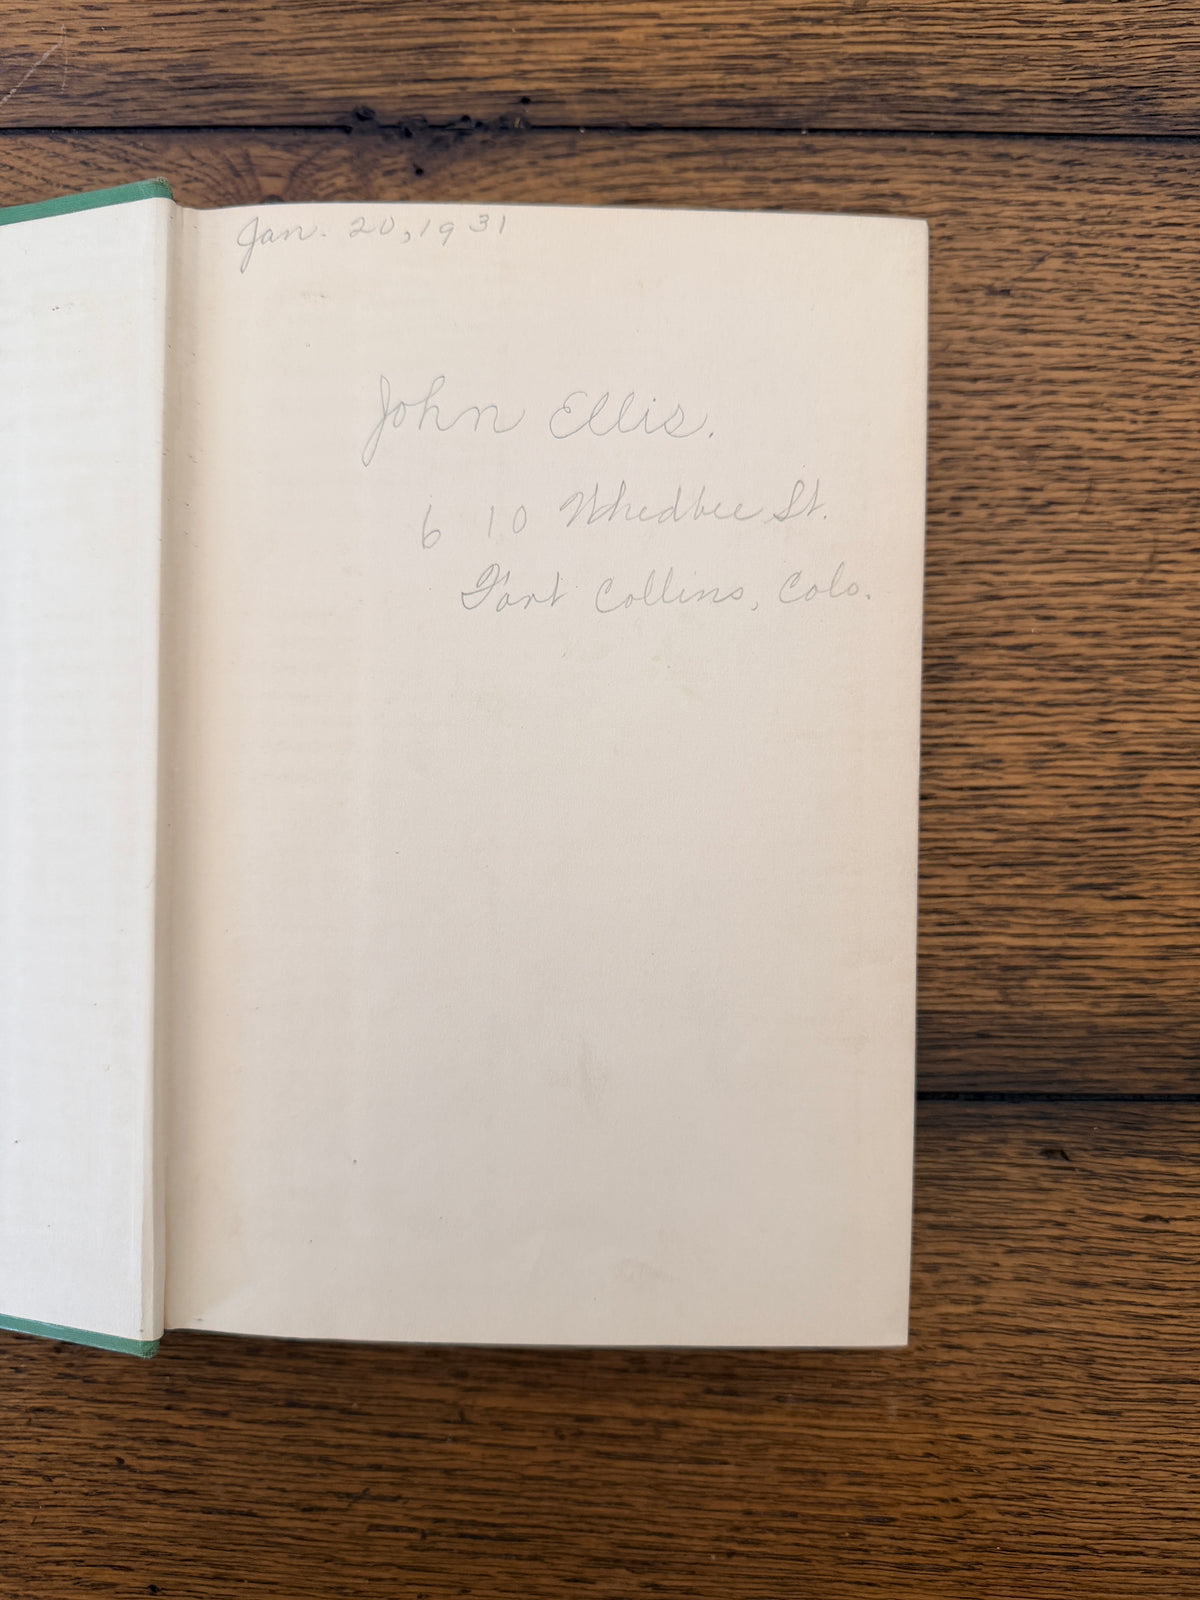 Jan. 20, 1931
John Ellis.
610 Whedbee St.
Fort Collins, Colo.